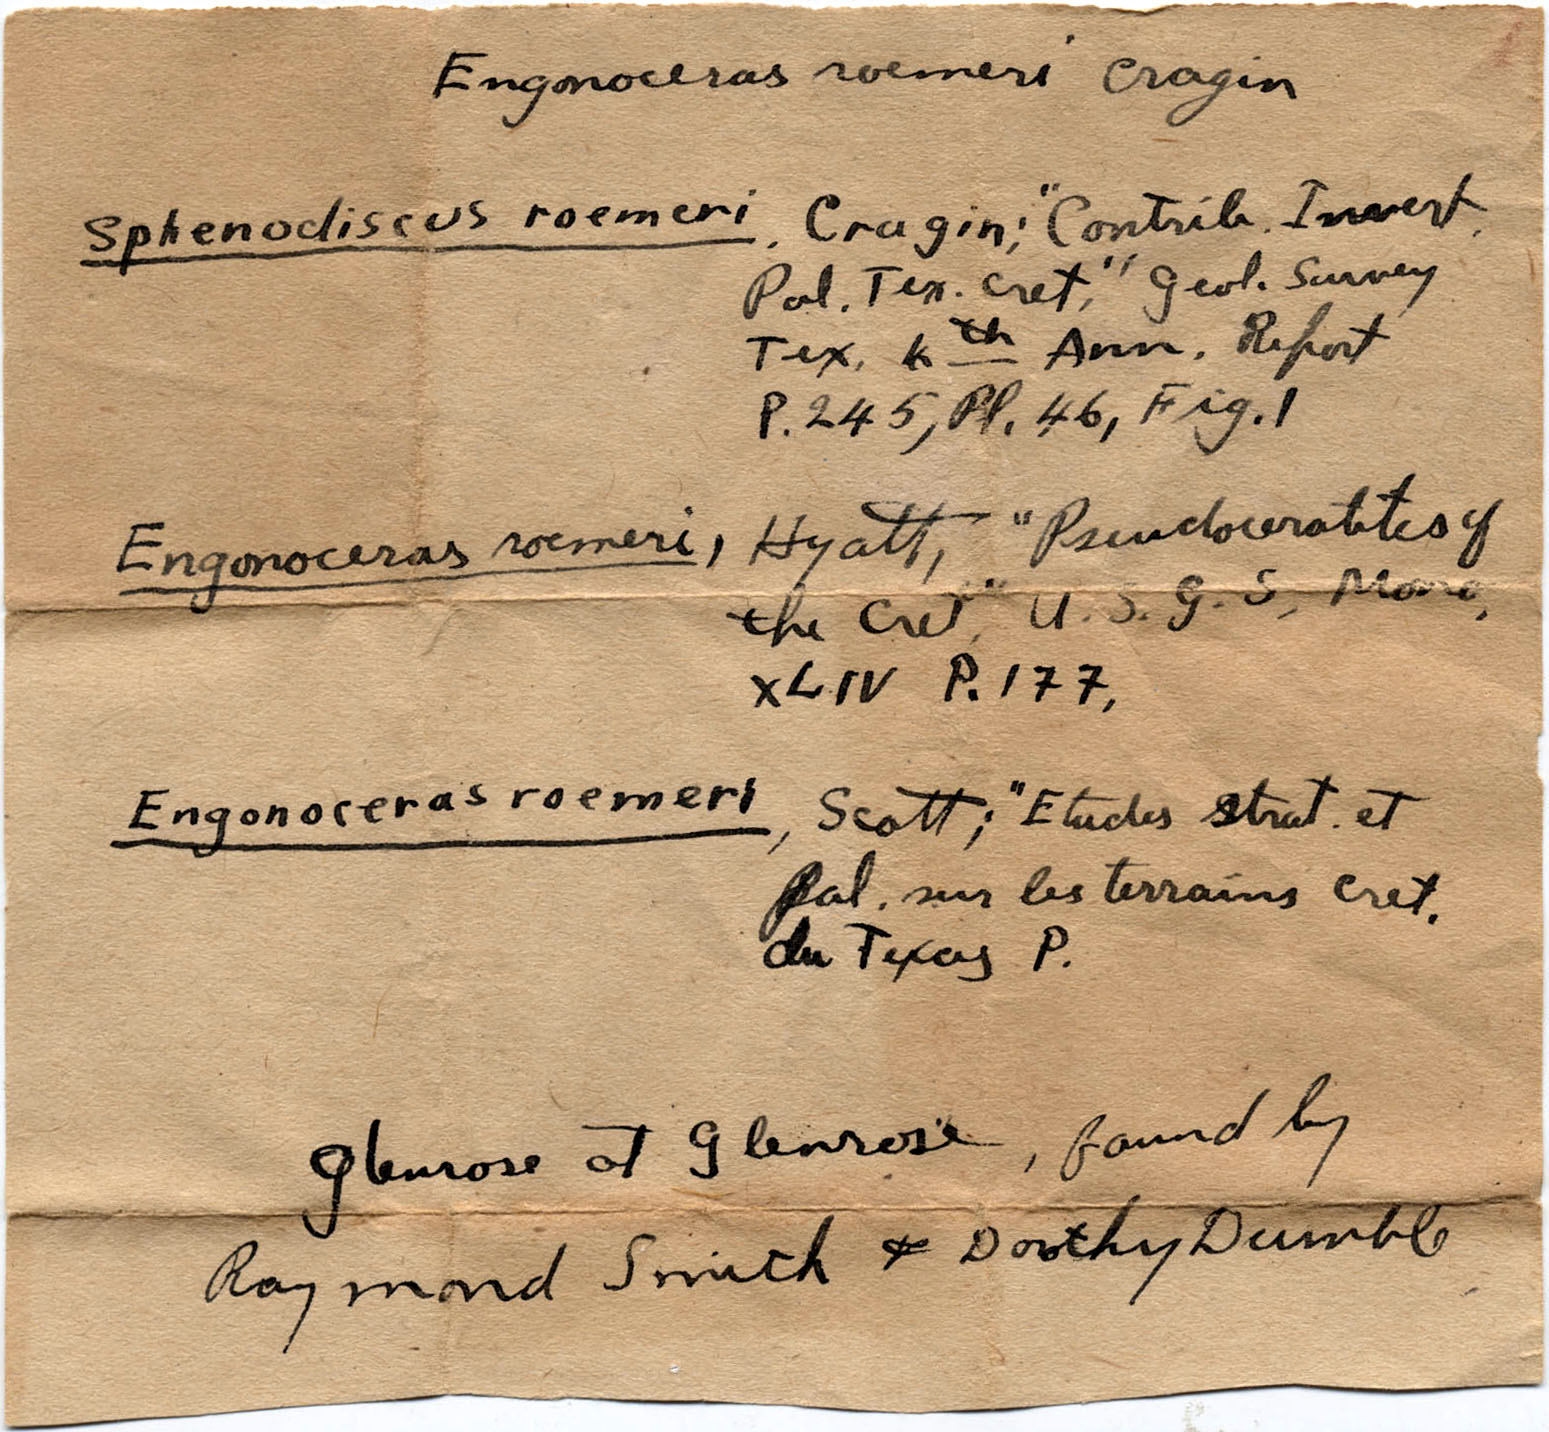 Engonoceras roemeri Cragin
Sphenodiscus roemeri, Cragin; "Contrib. Invert.
Pal. Tex. Cret," Geol. Survey
Tex. 4th Ann. Report
P. 245, Pl. 46, Fig. 1
Engonoceras roemeri, Hyatt, "Pseudoceratites of
the Cret," U. S. G. S, Mono,
XLIV P. 177,
Engonoceras roemeri, Scott; "Etudes strat. et
Pal. sur les terrains Cret.
du Texas P.
Glenrose at Glenrose, found by
Raymond Smith & Dorothy Dumble